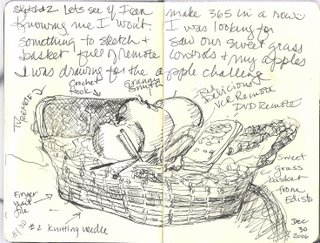 sketch #2 Lets see if I can make 365 in a row.
Knowing me I won't. I was looking for
something to sketch & saw our sweet grass
basket full of remote controls & my apples
I was drawing for the apple challenge
TV
REMOTE
Crochet
Hook
Granny
Smith
Red Delicious
VCR Remote
DVD Remote
Sweet
grass
basket
from
Edisto
Finger
nail
file
#2 knitting needle
Dec
30
2006